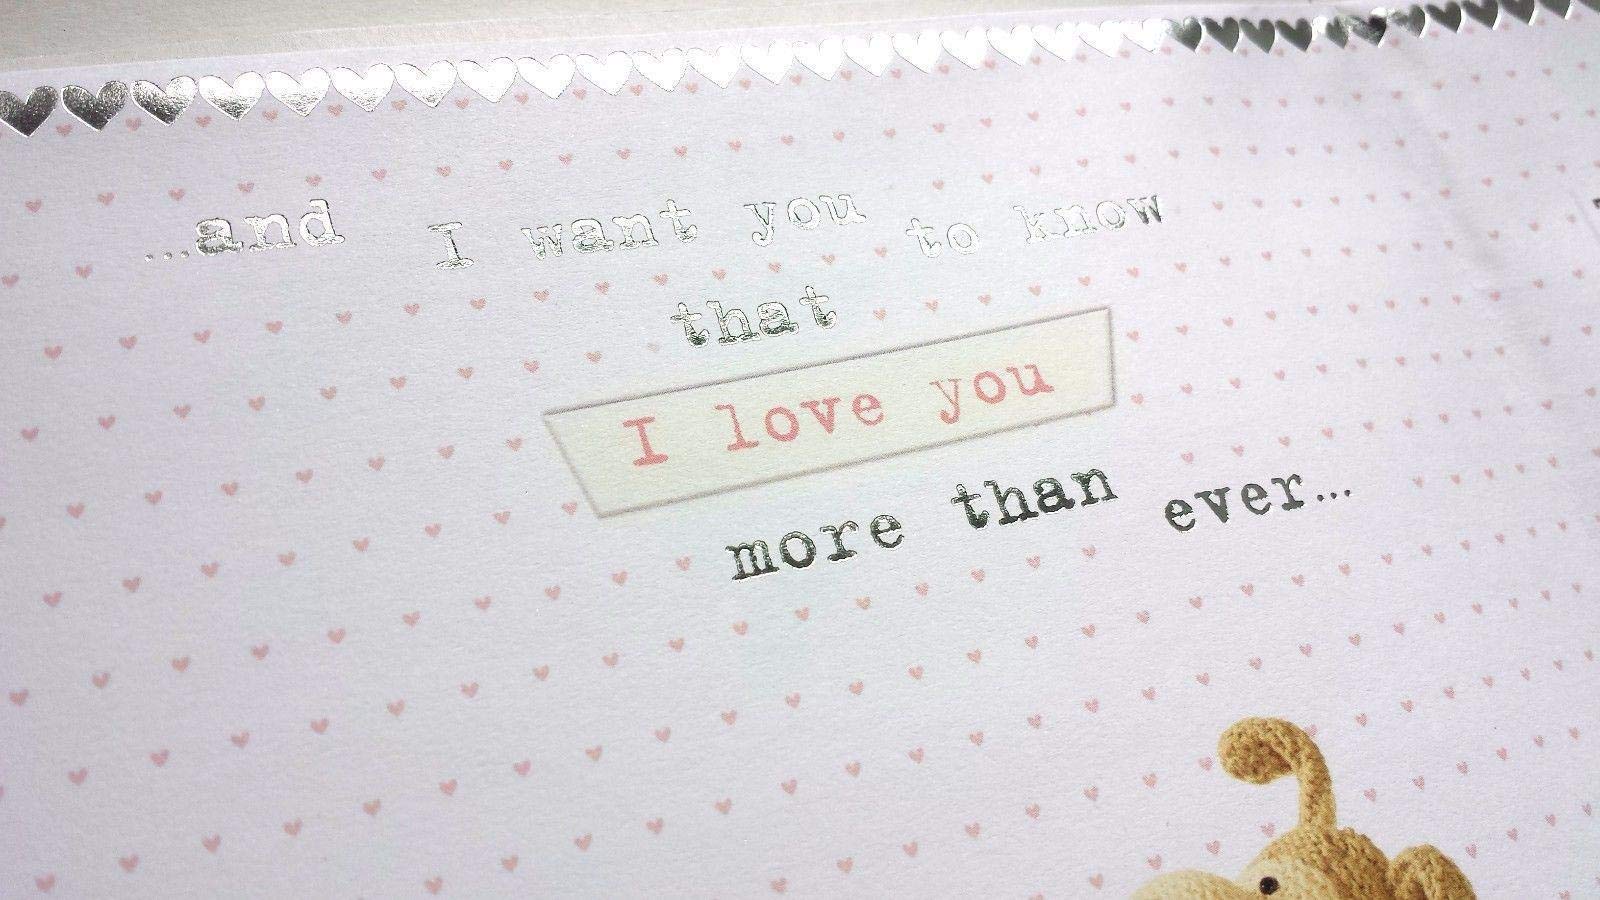 ...and I want you to know
that
I love you
more than ever...